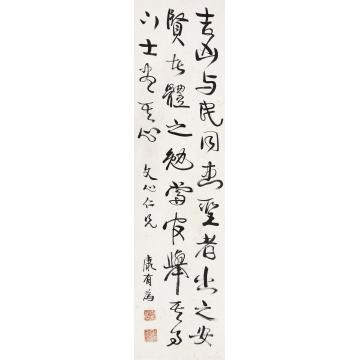 吉凶与民同患聖者出之安
賢者體之勉當官舉其
士盡其心
文心仁兄
康有為